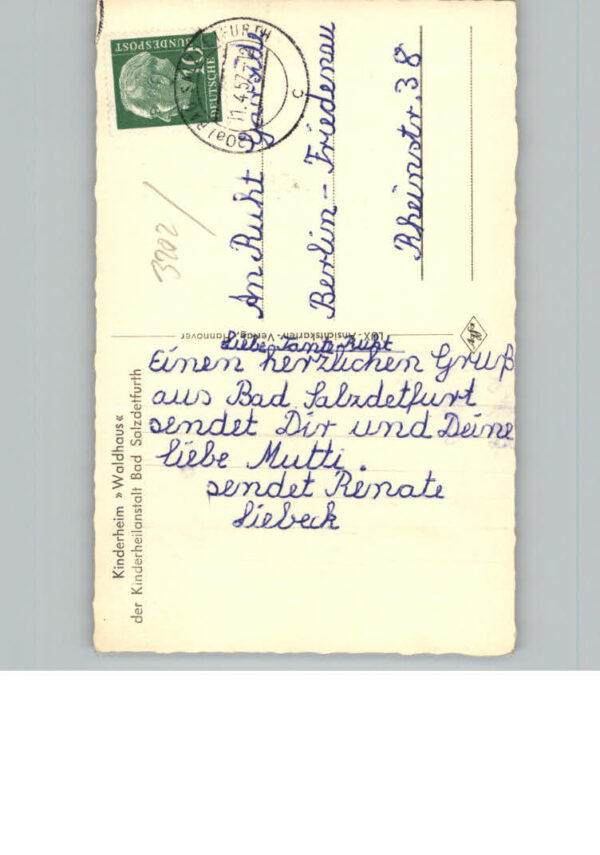 Kinderheim »Waldhaus«
der Kinderheilanstalt Bad Salzdetfurth
Liebe Tante Ruht
Einen herzlichen Gruß
aus Bad Salzdetfurt
sendet Dir und Deine
liebe Mutti.
sendet Renate
Liebeck
LUX-Ansichtskarten-Verlag, Hannover
DEUTSCHE
BUNDESPOST
10
FURTH
11.4.57
c
An Ruht
Berlin-Friedenau
Rheinstr. 38
3202/